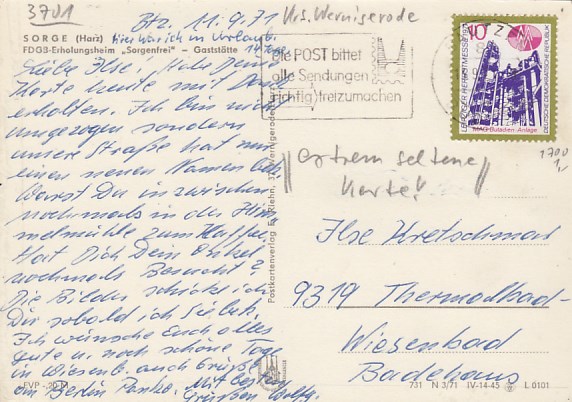 3701
Bfz. 11.9.71
Krs. Wernigerode
SORGE (Harz) hier war ich in Urlaub.
FDGB-Erholungsheim „Sorgenfrei" – Gaststätte 14 Tage
Liebe Ilse! Habe Deine
Karte heute mit Dank
erhalten. Ich bin nicht
umgezogen sondern
unsere Straße hat nur
einen neuen Namen bek.
Warst Du inzwischen
nochmals in der Him-
melmühle zum Kaffee?
Hat Dich Dein Onkel
nochmals Besucht?
Die Bilder schicke ich
Dir sobald ich Sie hab.
Ich wünsche Euch alles
gute u. noch schöne Tage
in Wiesenb. auch Grüße
aus Berlin Pankow. Mit besten
Grüßen Wolfg.
EVP -,20 M
Postkartenverlag E. Riehn, 37 Wernigerode (Harz)
Die POST bittet
alle Sendungen
richtig freizumachen
10
LEIPZIGER HERBSTMESSE 1971
DEUTSCHE DEMOKRATISCHE REPUBLIK
MAG-Butadien-Anlage
1700
1,-
extrem seltene
Karte!
Ilse Kretschmar
9319 Thermalbad-
Wiesenbad
Badehaus
731 N 3/71 IV-14-45 L 6101